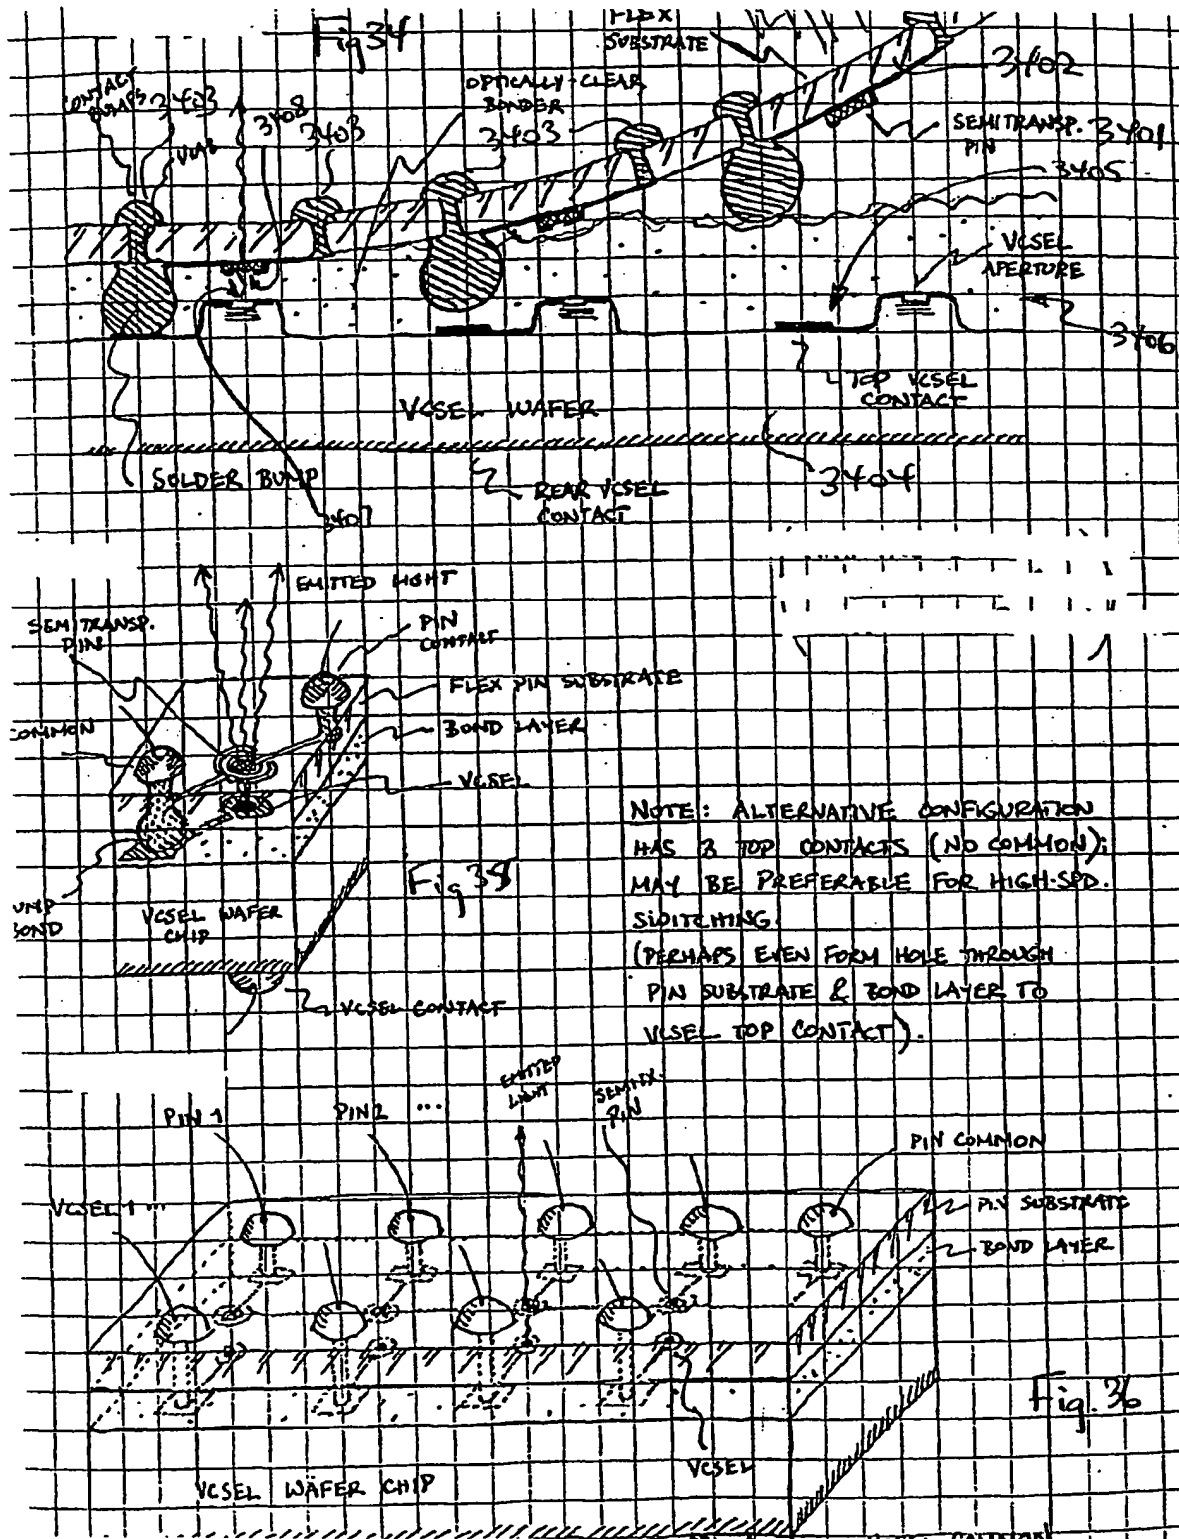 Fig 34
FLEX
SUBSTRATE
3402
CONTACT
BUMPS
3403
VIAS
3408
3403
OPTICALLY-CLEAR
BONDER
3403
SEMITRANSP.
PIN
3401
3405
VCSEL
APERTURE
3406
TOP VCSEL
CONTACT
VCSEL WAFER
SOLDER BUMP
3407
REAR VCSEL
CONTACT
3404
EMITTED LIGHT
SEMITRANSP.
PIN
PIN
CONTACT
FLEX PIN SUBSTRATE
COMMON
BOND LAYER
VCSEL
UMP
BOND
VCSEL WAFER
CHIP
VCSEL CONTACT
NOTE: ALTERNATIVE CONFIGURATION
HAS 3 TOP CONTACTS (NO COMMON);
MAY BE PREFERABLE FOR HIGH-SPD.
SWITCHING.
(PERHAPS EVEN FORM HOLE THROUGH
PIN SUBSTRATE & BOND LAYER TO
VCSEL TOP CONTACT).
PIN 1
PIN 2 ...
EMITTED
LIGHT
PIN
PIN COMMON
VCSEL 1 ...
PIN SUBSTRATE
BOND LAYER
Fig. 36
VCSEL
VCSEL WAFER CHIP